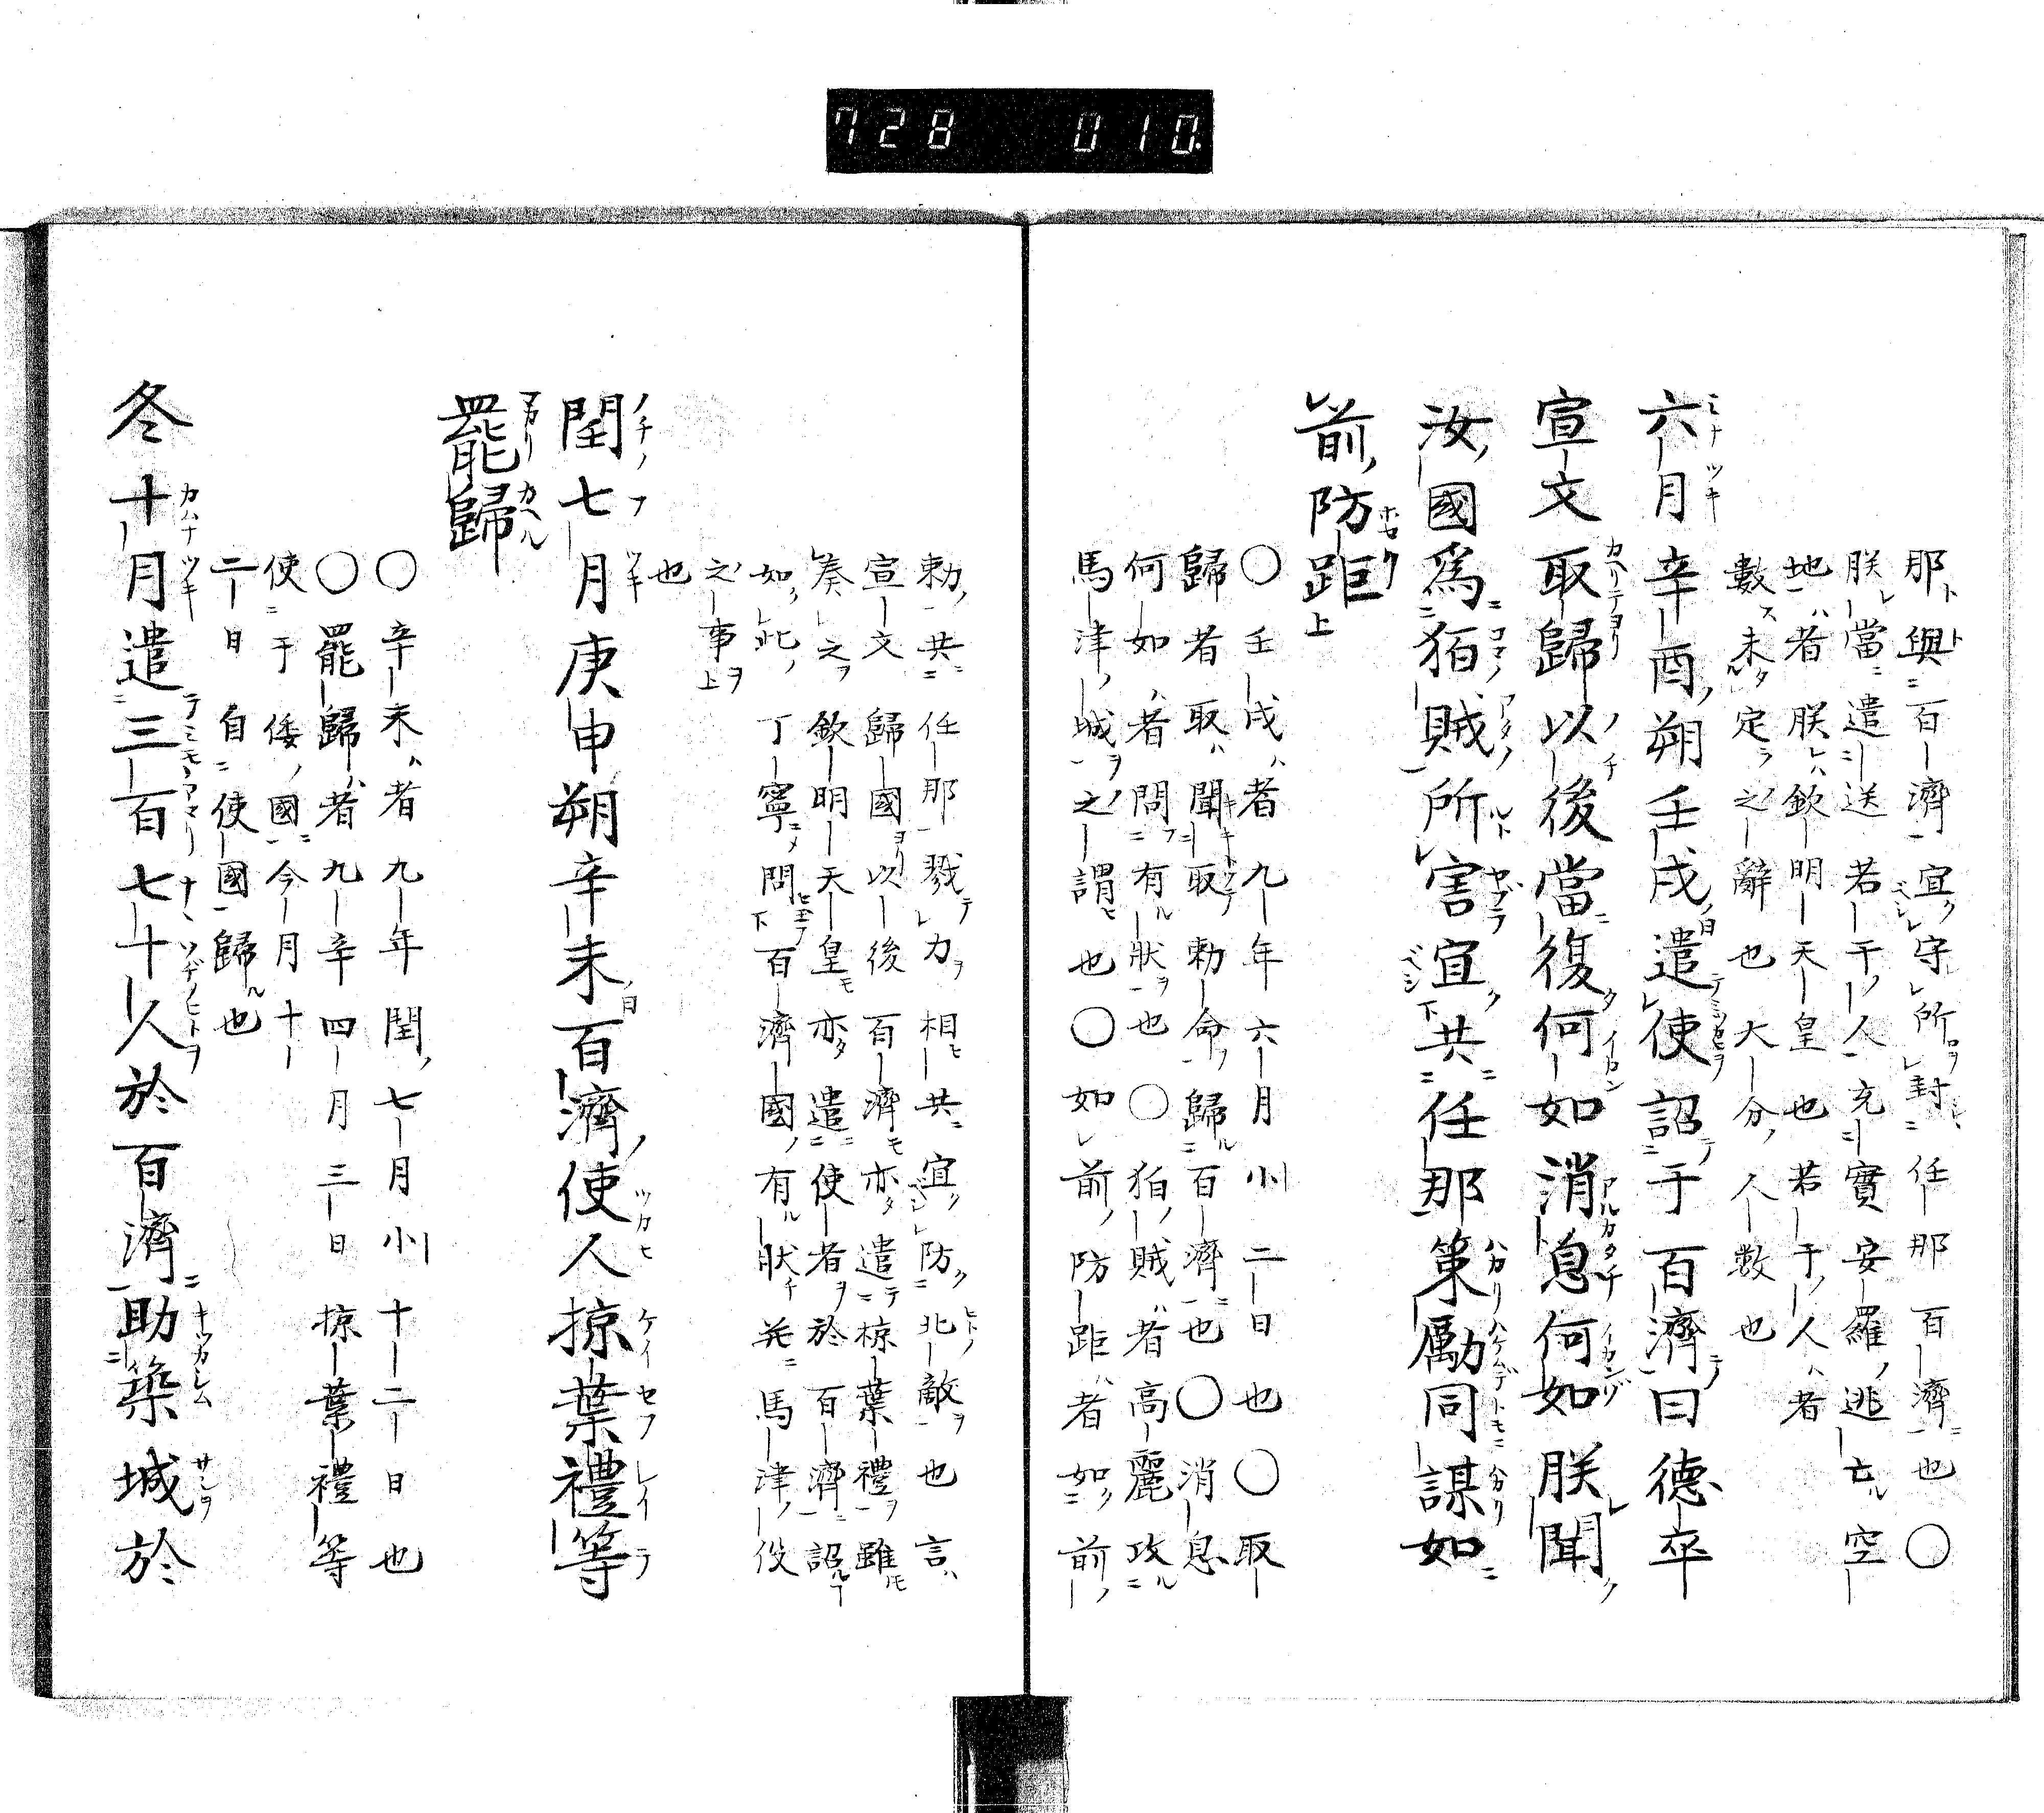 728 010.
那與百濟宜守所封任那百濟也〇
朕當遣送若干人充實安羅逃亡空
地者朕欽明天皇也若干人者
數未定之辭也大分人數也
六月辛酉朔壬戌遣使詔于百濟曰德卒
宣文取歸以後當復何如消息何如朕聞
汝國爲狛賊所害宜共任那策勵同謀如
前防距
〇壬戌者九年六月小二日也〇取
歸者取聞取勅命歸百濟也〇消息
何如者問有狀也〇狛賊者高麗攻
馬津城之謂也〇如前防距者如前
勅共任那戮力相共宜防北敵也言
宣文歸國以後百濟亦遣掠葉禮雖
奏之欽明天皇亦遣使者於百濟詔
如此丁寧問百濟國有狀并馬津役
之事
也
閏七月庚申朔辛未百濟使人掠葉禮等
罷歸
〇辛未者九年閏七月小十二日也
〇罷歸者九辛四月三日掠葉禮等
使于倭國今月十
二日自使國歸也
冬十月遣三百七十人於百濟助築城於